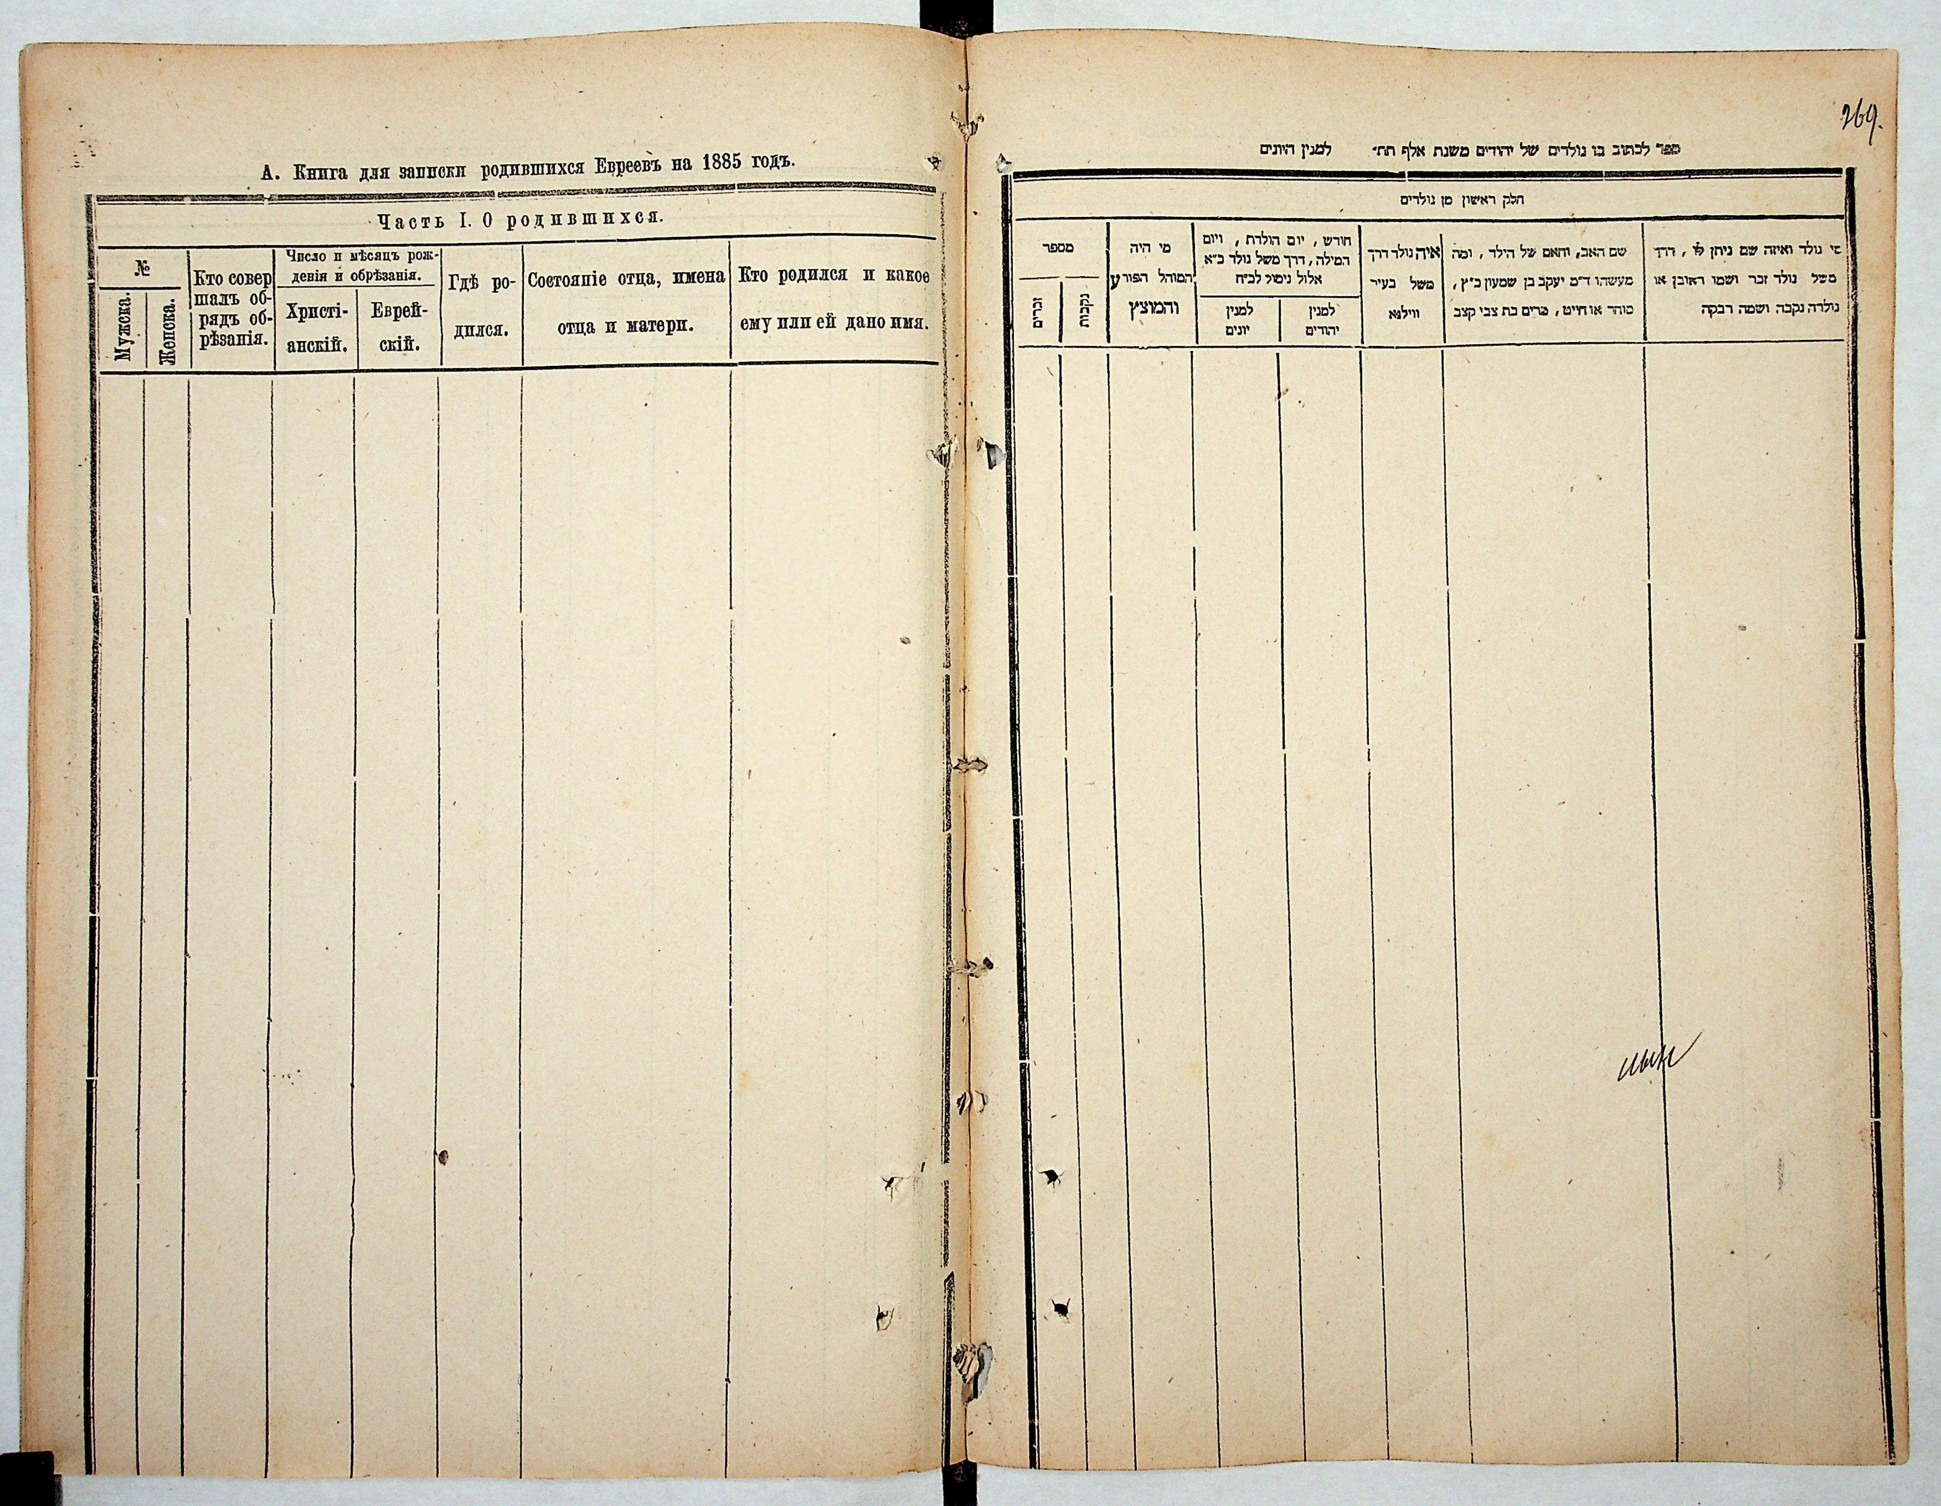 А. Книга для записки родившихся Евреевъ на 1885 годъ.
Часть I. О родившихся.
№
Мужска.
Женска.
Кто совер
шалъ об-
рядъ об-
рѣзанія.
Число и мѣсяцъ рож-
денія и обрѣзанія.
Христі-
анскій.
Еврей-
скій.
Гдѣ ро-
дился.
Состояніе отца, имена
отца и матери.
Кто родился и какое
ему или ей дано имя.
269.
ספר לכתוב בו נולדים של יהודים משנת אלף תת״ למנין היונים
חלק ראשון מן נולדים
מספר
זכרים
נקבות
מי היה
המוהל הפורע
והמוצץ
חורש, יום הולדת, ויום
המילה, דרך משל נולד כ״א
אלול נימול לכ״ח
למנין
יונים
למנין
יהודים
איה נולד דרך
משל בעיר
ווילנא
שם האב, והאם של הילד, ומה
מעשהו ד״מ יעקב בן שמעון כ״ץ,
סוהר או חייט, מרים בת צבי קצב
מי נולד ואיזה שם ניתן לו, דרך
משל נולד זכר ושמו ראובן או
נולדה נקבה ושמה רבקה